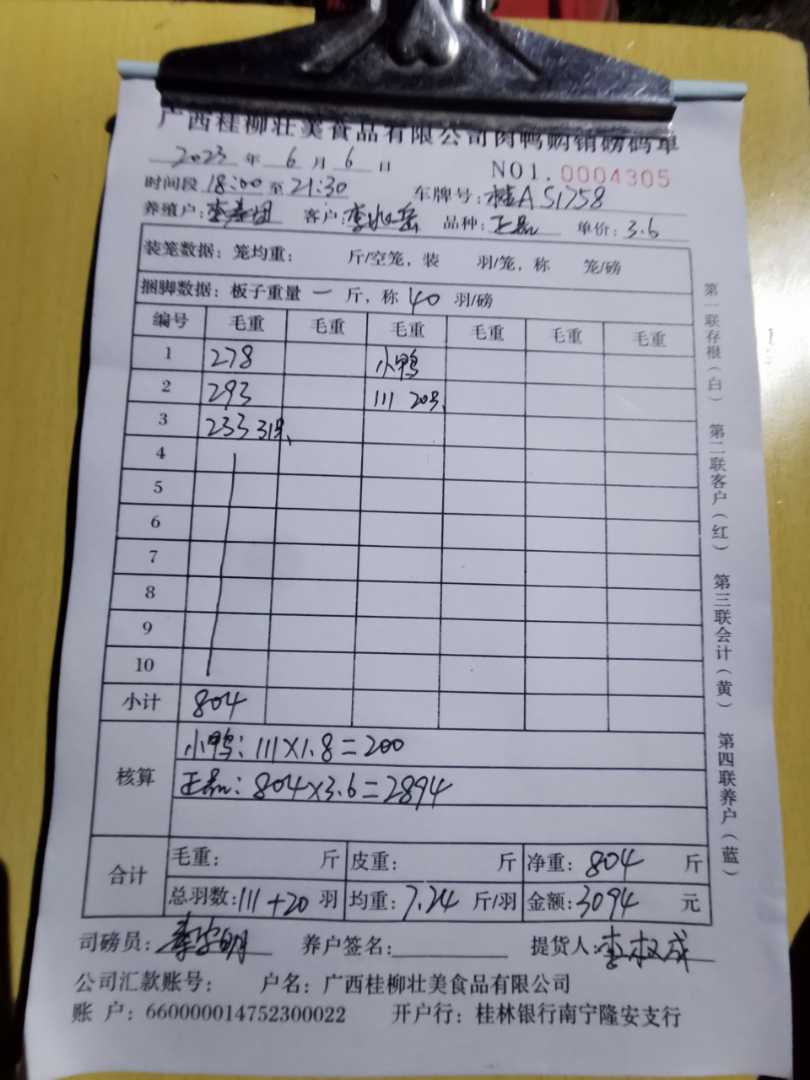 广西桂柳壮美食品有限公司肉鸭购销磅码单
2023 年 6 月 6 日 NO1.0004305
时间段 18:00 至 21:30 车牌号: 桂A S1758
养殖户: 李 客户: 李 岳 品种: 正品 单价: 3.6
装笼数据: 笼均重: 斤/空笼, 装 羽/笼, 称 笼/磅
捆脚数据: 板子重量 一 斤, 称 40 羽/磅
编号 毛重 毛重 毛重 毛重 毛重 毛重
1 278 小鸭
2 293 111 20只
3 233 31只
4
5
6
7
8
9
10
小计 804
核算 小鸭: 111×1.8=200
正品: 804×3.6=2894
合计 毛重: 斤 皮重: 斤 净重: 804 斤
总羽数: 111+20 羽 均重: 7.24 斤/羽 金额: 3094 元
司磅员: 明 养户签名: 提货人: 李权成
公司汇款账号: 户名: 广西桂柳壮美食品有限公司
账 户: 660000014752300022 开户行: 桂林银行南宁隆安支行
第一联存根(白) 第二联客户(红) 第三联会计(黄) 第四联养户(蓝)